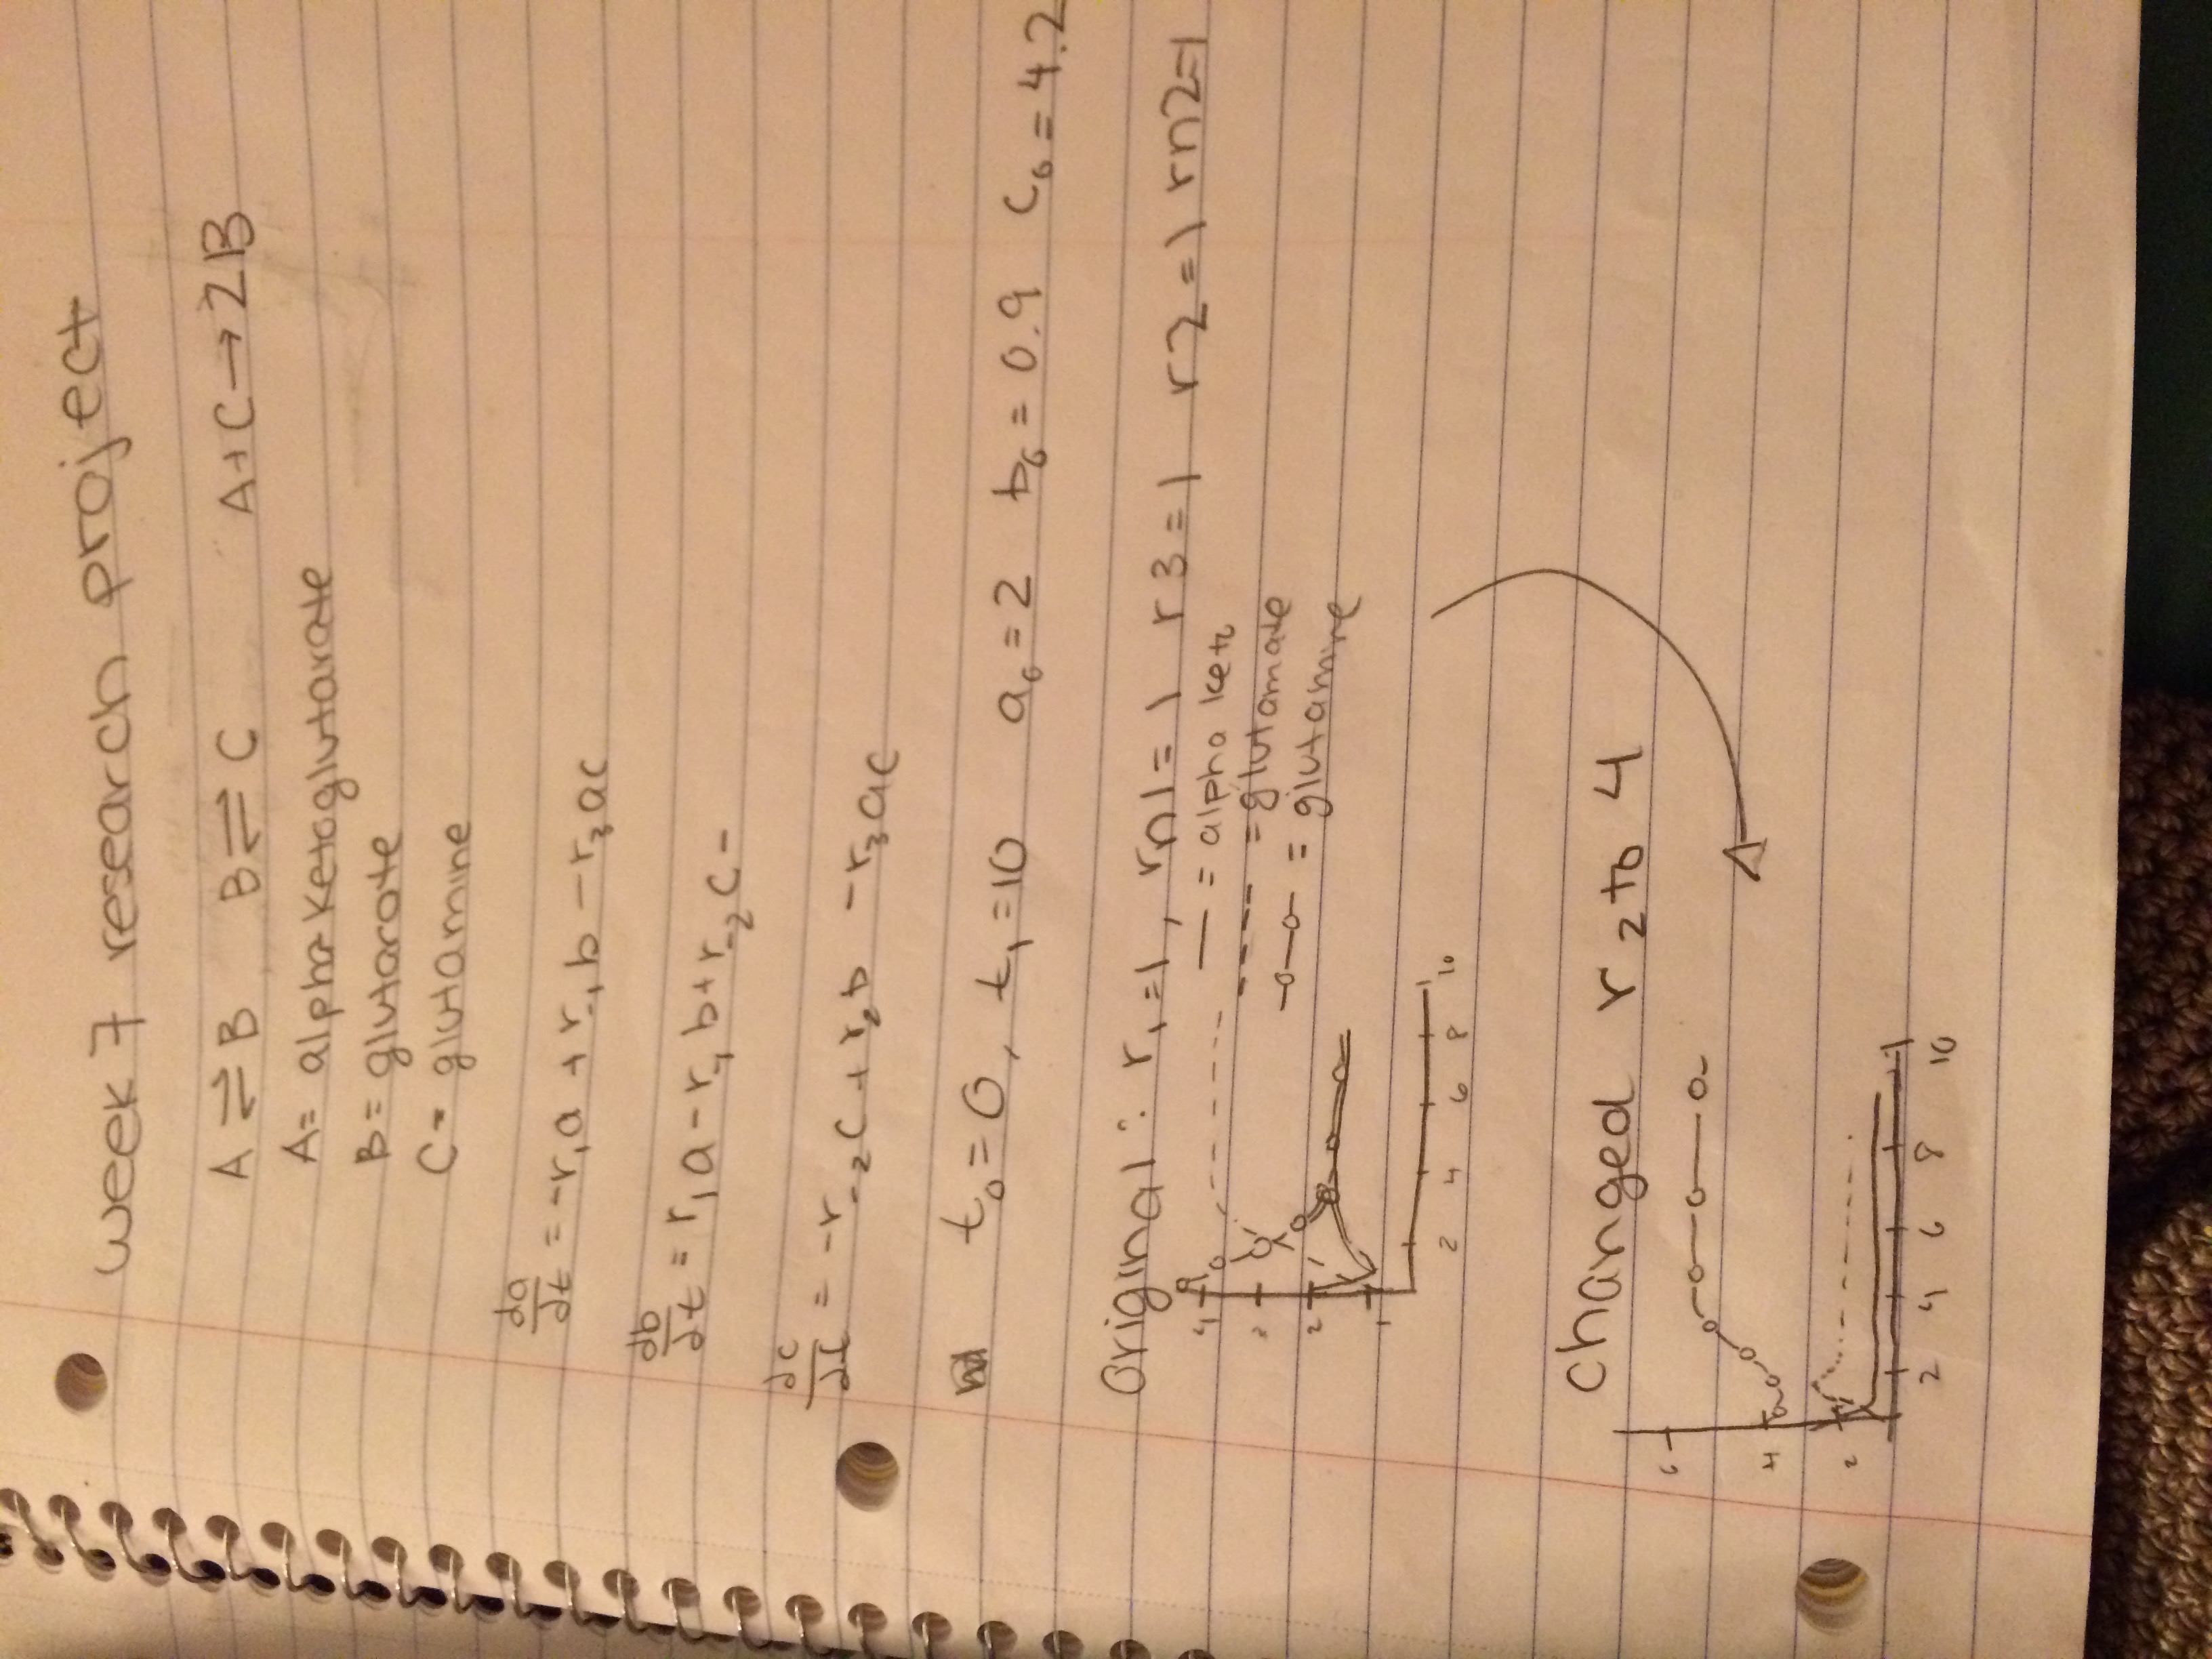 week 7 research project
A ⇌ B B ⇌ C A+C → 2B
A= alpha ketoglutarate
B= glutarote
C= glutamine
da/dt = -r₁a + r₋₁b - r₃ac
db/dt = r₁a - r₋₁b + r₋₂c -
dc/dt = -r₋₂c + r₂b - r₃ac
t₀=0, t₁=10 a₀=2 b₀=0.9 c₀=4.2
Original: r₁=1, rn1=1 r3=1 r2=1 rn2=1
— = alpha keto
---- = glutamate
-o-o- = glutamine
4
3
2
1
2 4 6 8 10
Changed r₂ to 4
6
4
2
2 4 6 8 10